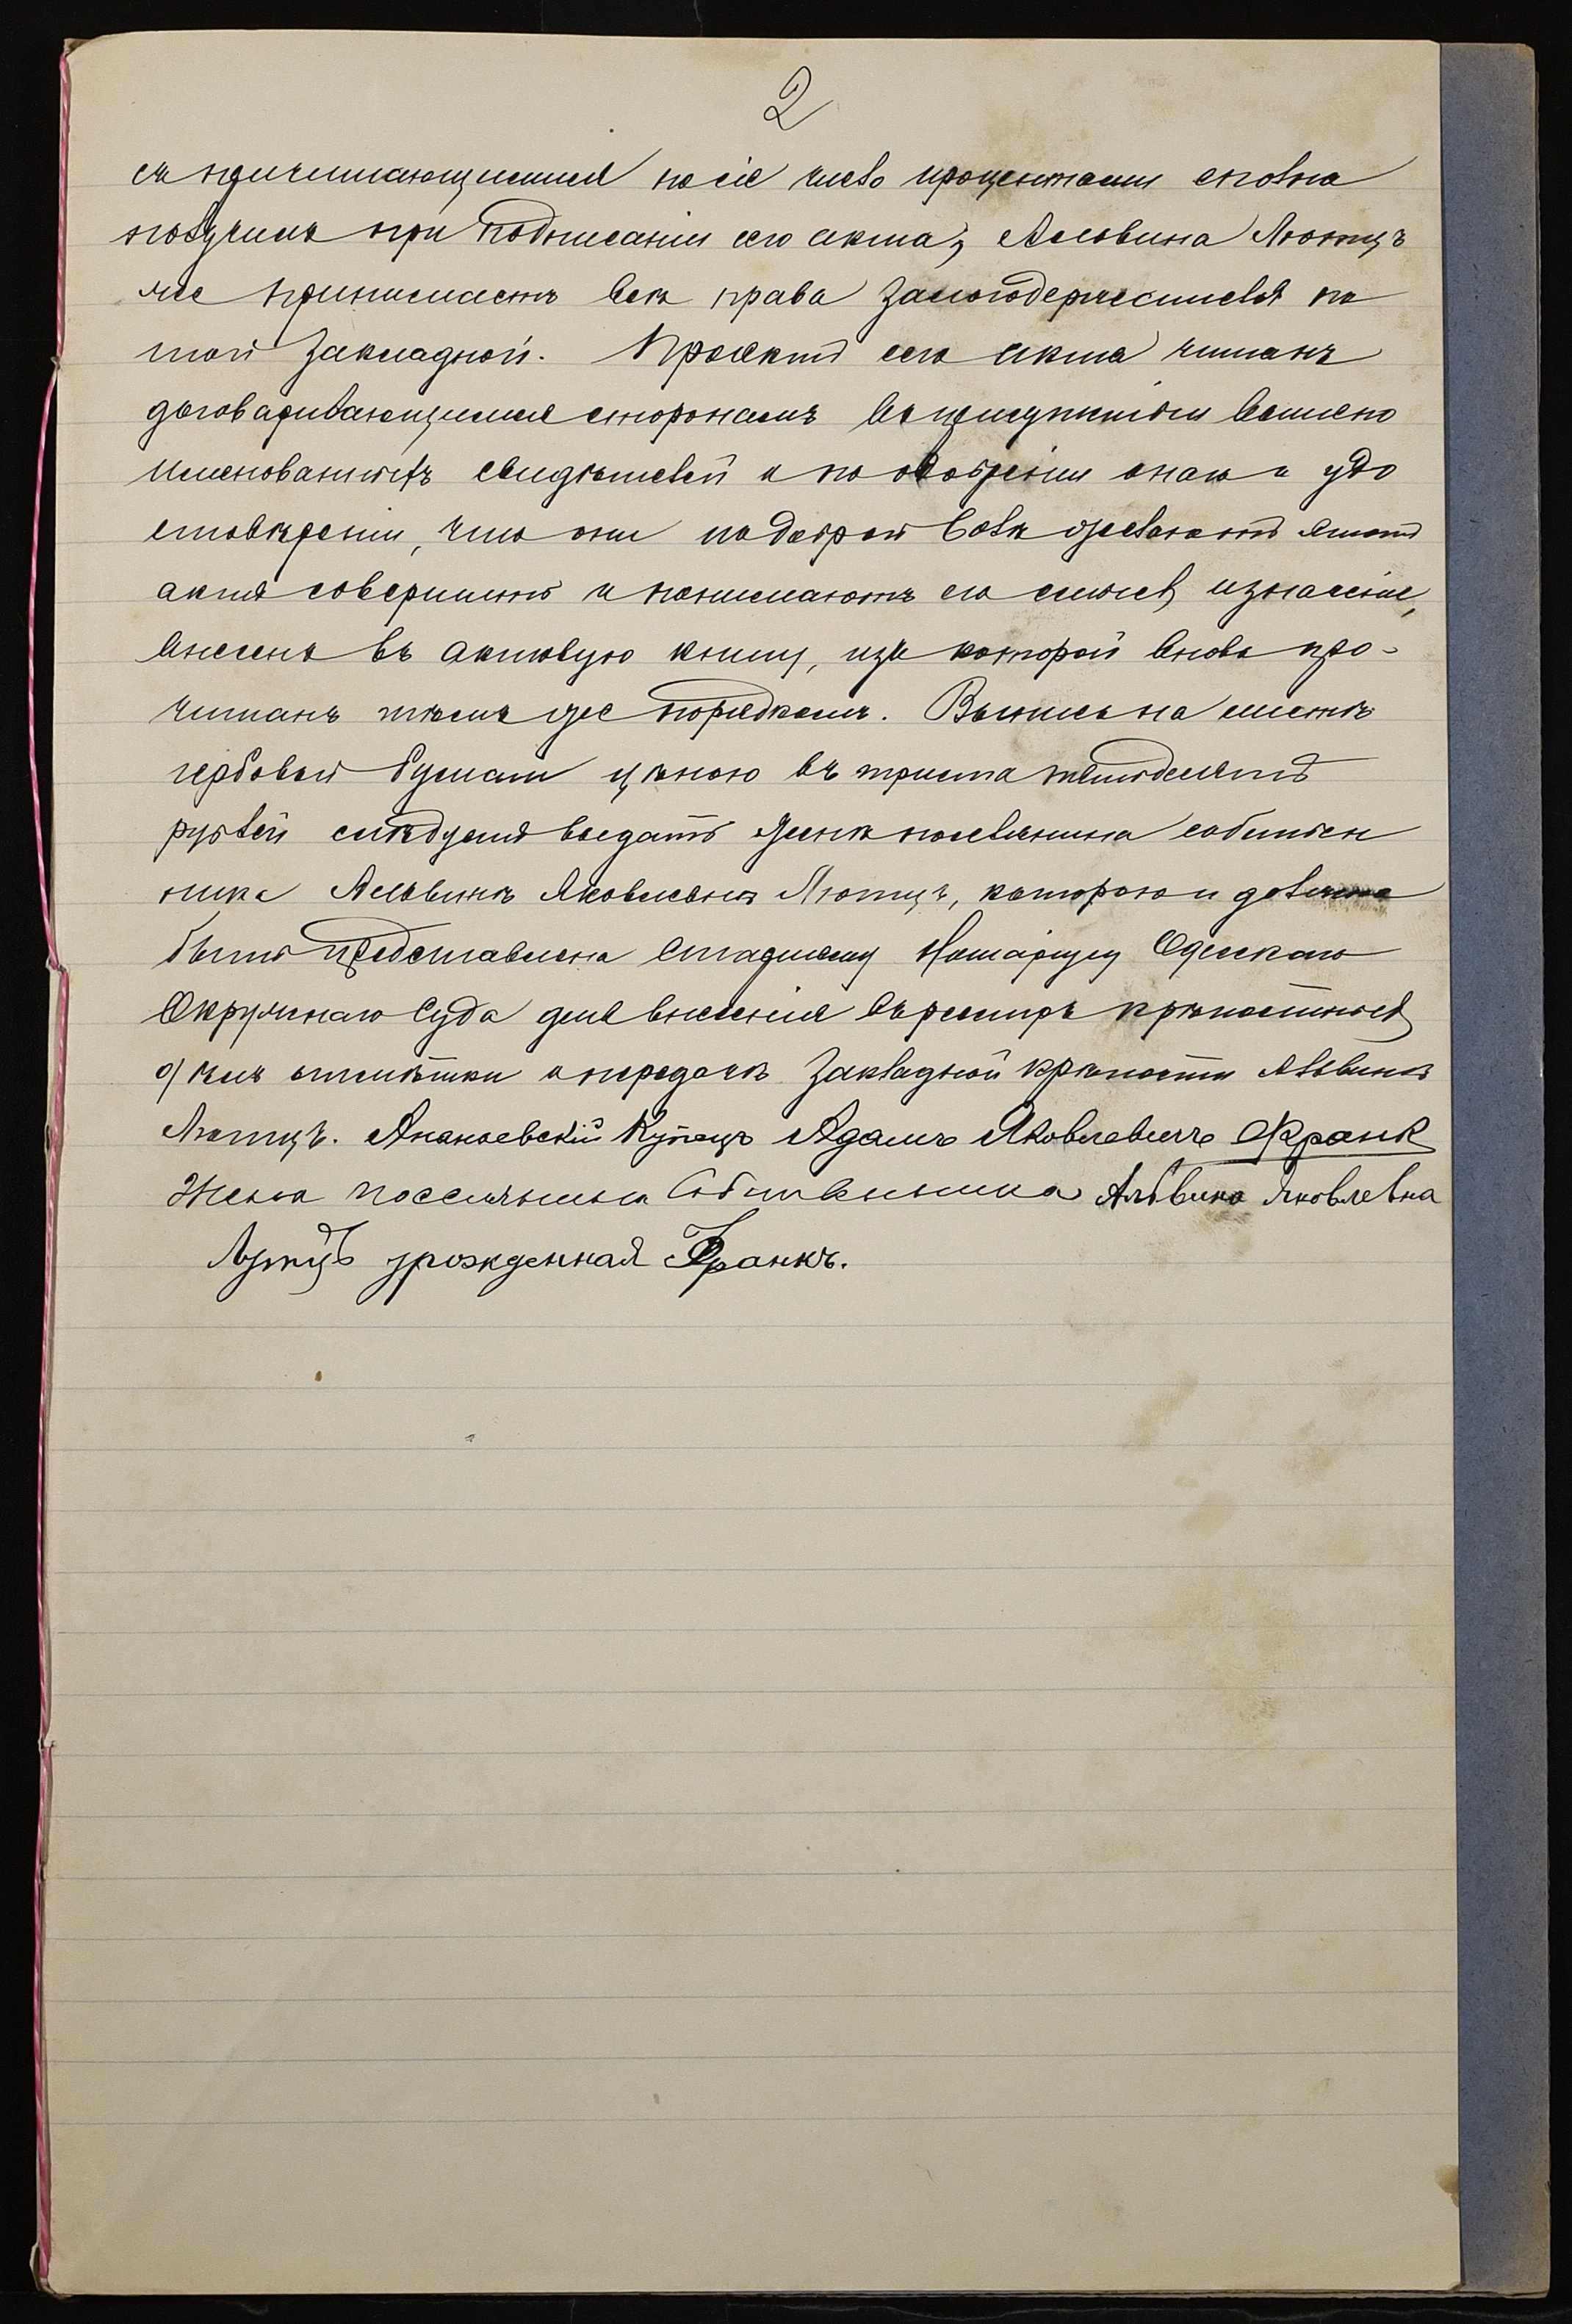 2
съ причитающимися по сіе число процентами сполна
получилъ при подписаніи сего акта, Альвина Лютцъ
же принимаетъ всѣ права залогодержателя по
той закладной. Проектъ сего акта читанъ
договаривающимся сторонамъ въ присутствіи выше
именованныхъ свидѣтелей и по одобреніи онаго и удо
стовѣреніи, что они по доброй волѣ желаютъ этотъ
актъ совершить и понимаютъ его смыслъ и значеніе,
внесенъ въ актовую книгу, изъ которой вновь про-
читанъ тѣмъ же порядкомъ. Выпись на листѣ
гербовой бумаги цѣною въ триста пятьдесятъ
рублей слѣдуетъ выдать женѣ поселянина собствен
ника Альвинѣ Яковлевнѣ Лютцъ, которою и должна
быть представлена Старшему Нотаріусу Одесскаго
Окружнаго Суда для внесенія въ реестръ крѣпостныхъ
дѣлъ отмѣтки о передачѣ закладной крѣпости Альвинѣ
Лютцъ. Ананьевскій Купецъ Адамъ Яковлевичъ Франк
Жена поселянина Собственника Альвина Яковлевна
Лутцъ урожденная Франкъ.